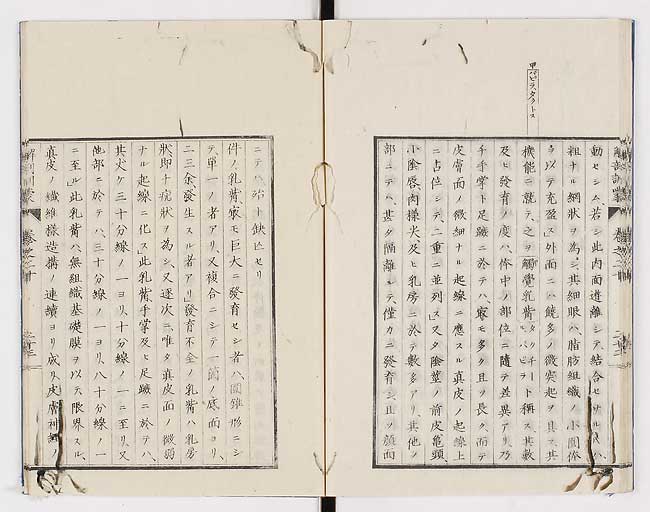 甲パピラ、タクトス
動セシム、若シ此内面遊離シテ、結合セサル
粗ナル網狀ヲ為シ、其細眼ハ、脂肪組織ノ小團体
ヲ以テ充盈ス」外面ニハ饒多ノ微突起ヲ具ス、其
機能ニ就テ、之ヲ觸覺乳觜ト稱ス、其數
及ヒ發育ノ度ハ、体中ノ部位ニ隨テ差異アリ、乃
チ手掌ト足蹠ニ於テハ、寂モ多ク且ツ長ク、而テ
皮膚面ノ微細ナル起線ニ應スル真皮ノ起線上
ニ占位シテ、二重ニ並列ス」又タ陰莖ノ前皮龜頭、
小陰唇肉様尖及ヒ乳房ニ於テ數多アリ、其他ノ
部ニテハ、甚タ隔離シテ、僅カニ發育シ、且ツ顔面
ニテハ殆ト缺亡セリ
件ノ乳觜、寂モ巨大ニ發育セシ者ハ、圓錐形ニシ
テ、單一ノ者アリ、又複合ニシテ一箇ノ底面ヨリ、
二三余發生スル者アリ」發育不全ノ乳觜ハ乳房
狀即十疣狀ヲ為シ、又逐次ニ、唯タ真皮面ノ微弱
ナル起線ニ化ス」此乳觜、手掌及ヒ足蹠ニ於テハ、
其丈ケ三十分線ノ一ヨリ、十分線ノ一ニ至リ、又
他部ニ於テハ、三十分線ノ一ヨリ、八十分線ノ一
ニ至ル」此乳觜ハ、無組織基礎膜ヲ以テ限界スル、
真皮ノ纖維様造構ノ連續ヨリ成リ、皮膚神